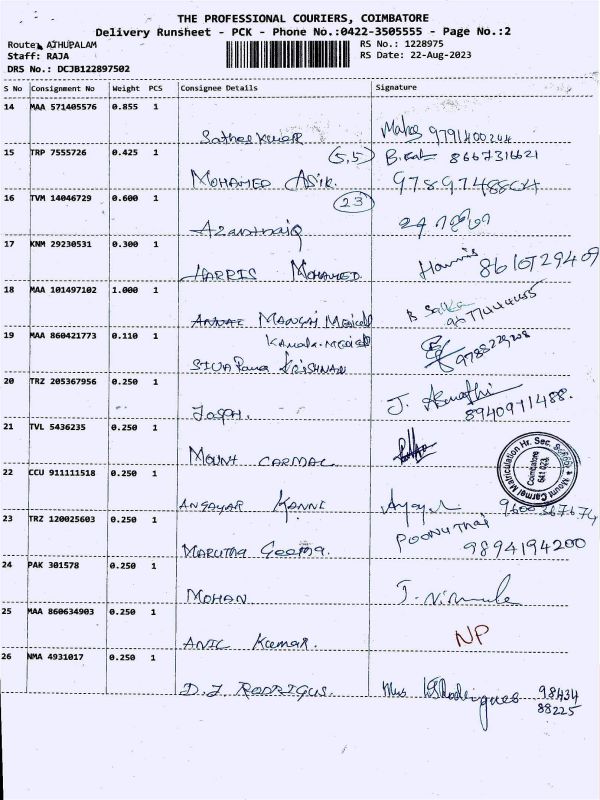 THE PROFESSIONAL COURIERS, COIMBATORE
Delivery Runsheet - PCK - Phone No.:0422-3505555 - Page No.:2
Route: ATHUPALAM
RS No.: 1228975
Staff: RAJA
RS Date: 22-Aug-2023
DRS No.: DCJB122897502
S No Consignment No Weight PCS Consignee Details Signature
14 MAA 571405576 0.855 1
Sathes Kumar 9791400244
15 TRP 7555726 0.425 1
(5,5) 8667316621
MOHAMED ASIK.
16 TVM 14046729 0.600 1
(23)
17 KNM 29230531 0.300 1
HARRIS MOHAMED Harris
18 MAA 101497102 1.000 1
ANNAI MANGAI Medical
19 MAA 860421773 0.110 1
Kamala-MEDICAL
SIVA Rama KRISHNAN 9788229208
20 TRZ 205367956 0.250 1
J.
8940971488.
21 TVL 5436235 0.250 1
MOUNT CARMAL
Mount Carmel Matriculation Hr. Sec. School
Coimbatore
641 023
22 CCU 911111518 0.250 1
ANGAYAR KANNI 9600367674
23 TRZ 120025603 0.250 1
POONUTHAI
MARUTHA Geetha. 9894194200
24 PAK 301578 0.250 1
MOHAN. J. Nirmala
25 MAA 860634903 0.250 1
ANIL Kumar. NP
26 NMA 4931017 0.250 1
D.J RODRIGUS. Mrs Rhodrigues 98434
88225